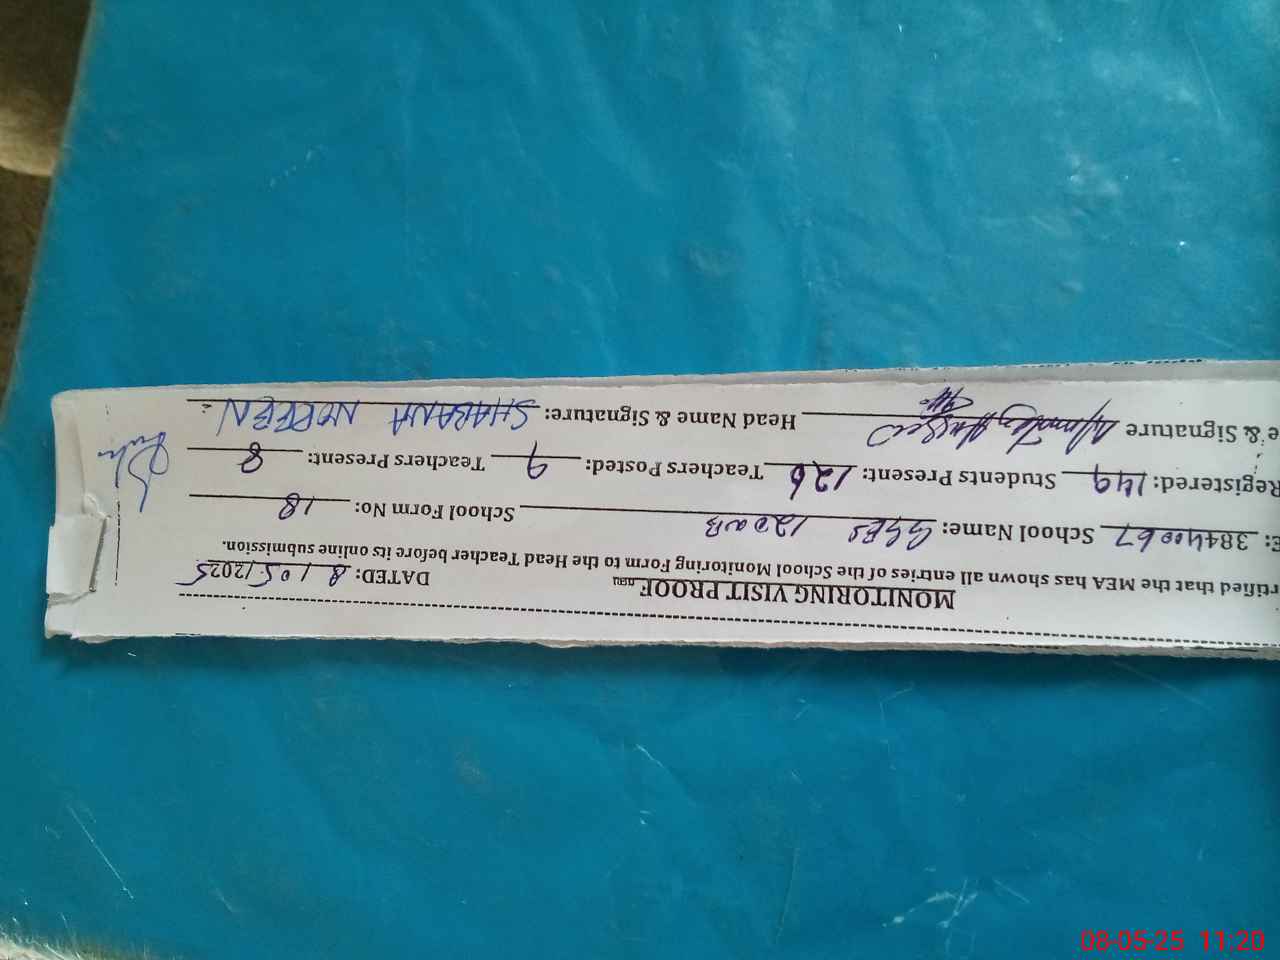 MONITORING VISIT PROOF DATED: 8/05/2025
rtified that the MEA has shown all entries of the School Monitoring Form to the Head Teacher before its online submission.
E: 38440067 School Name: GGES 120 NB School Form No: 18
Registered: 149 Students Present: 126 Teachers Posted: 9 Teachers Present: 8
e & Signature Head Name & Signature: SHABANA NOREEN
08-05-25 11:20